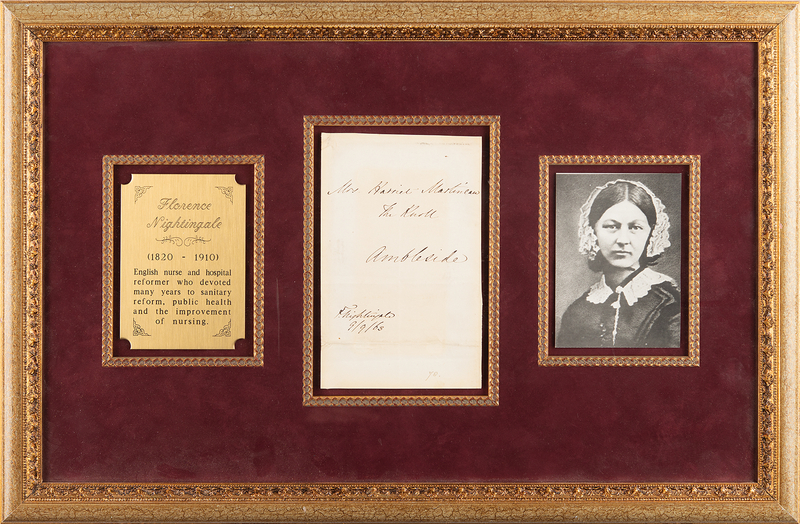 Florence
Nightingale
(1820 - 1910)
English nurse and hospital
reformer who devoted
many years to sanitary
reform, public health
and the improvement
of nursing.
Mrs Harriet Martineau
The Knoll
Ambleside
F Nightingale
9/9/63